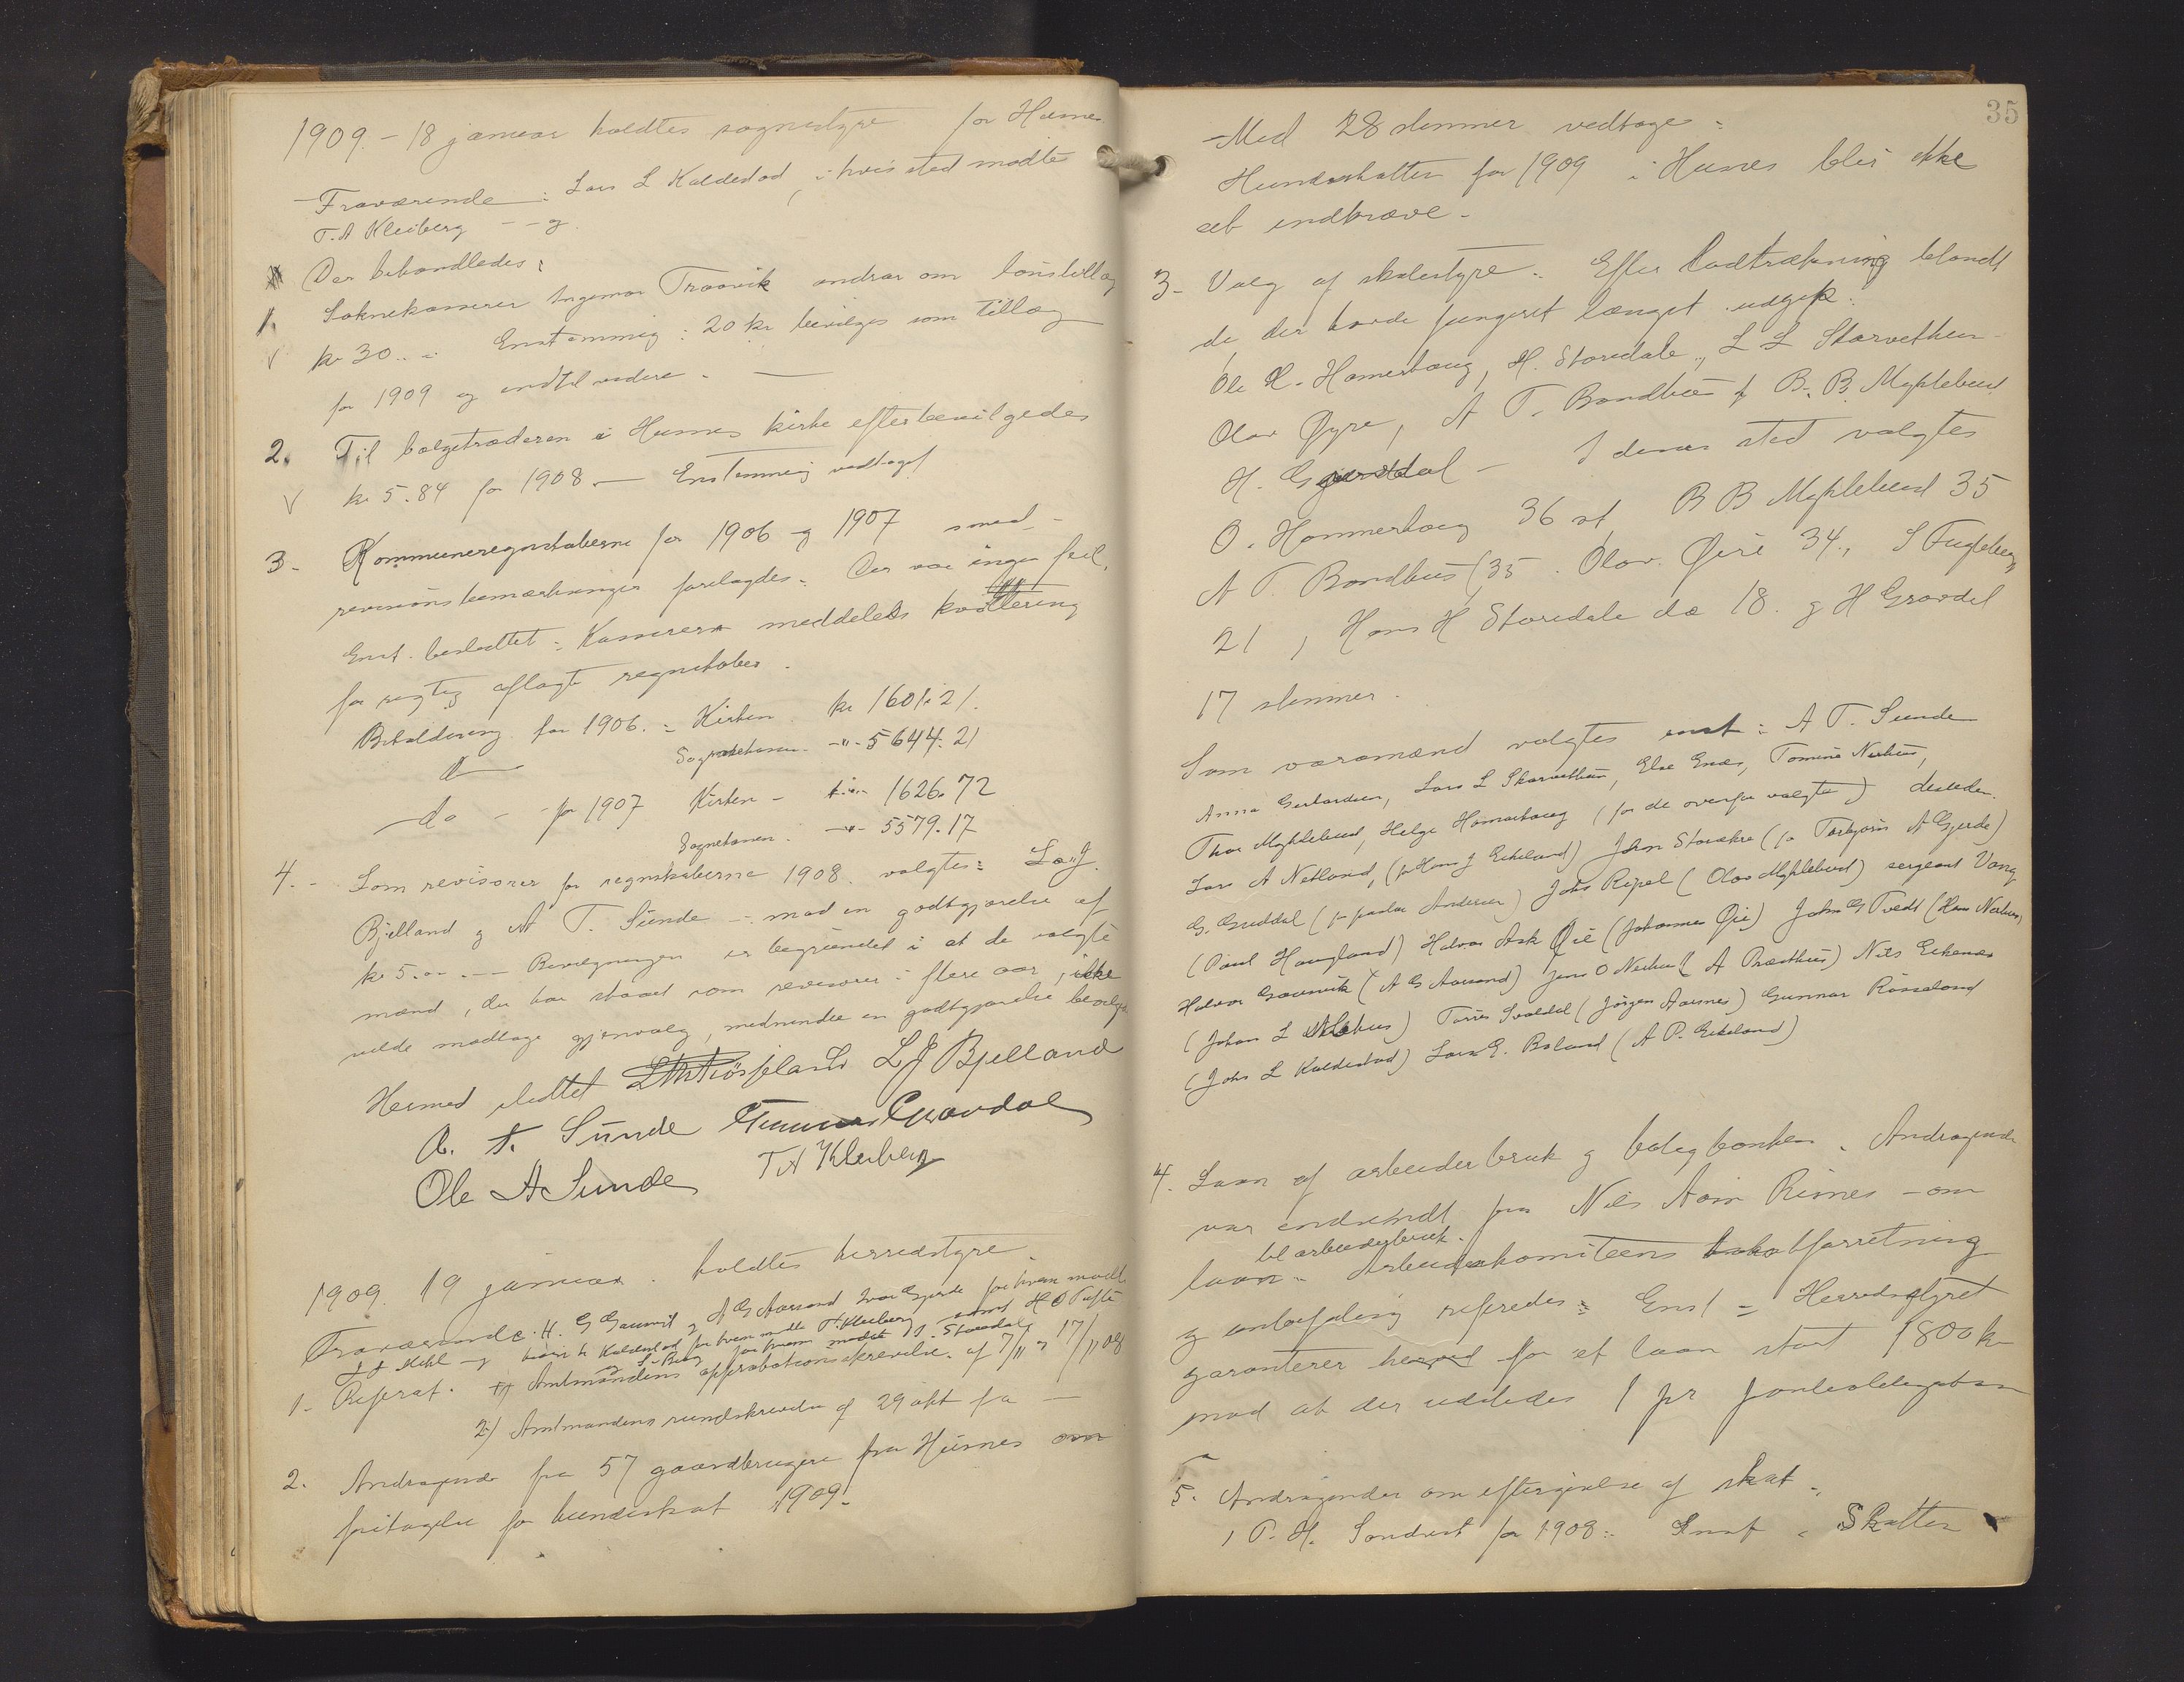 1909.- 18 januar holdtes sognestyre for Husnes
Fraværende: Lars L Kaldestad, i hvis sted mødte
T.A Kleiberg -- og
Der behandledes:
1. Soknekasserer Ingemar Traavik andrar om lønstillæg
kr 30.. - Enstemmig: 20 kr bevilges som tillæg
for 1909 og indtil videre. —
2. Til bælgetræderen i Husnes kirke efterbevilgedes
kr 5.84 for 1908. — Enstemmig vedtaget
3- Kommuneregnskaberne for 1906 og 1907 med
revisionsbemærkninger forelagdes. Der var ingen feil,
Enst. besluttet: Kassereren meddeles kvittering
for rigtig aflagte regnskaber.
Beholdning for 1906. = Kirken kr 1601.21.
do Sognekassen -"- 5644.21
do - for 1907 Kirken - -"- 1626.72
Sognekassen. -"- 5579.17
4.- Som revisorer for regnskaberne 1908. valgtes: L. J.
Bjelland og A T. Sunde - mod en godtgjørelse af
kr 5.00 .-- Bevilgningen er begrundet i at de valgte
mænd, der har staaet som revisorer i flere aar, ikke
vilde modtage gjenvalg, medmindre en godtgjørelse bevilges
Hermed sluttet L J Bjelland
A. T. Sunde Gunnar Guddal
Ole A Sunde T A Kleiberg
1909. 19 januar. holdtes herredstyre.
Fraværende: H. G Gaunvik, A G Aarsand Ivar Gjerde for hvem mødte
for hvem mødte T. Kleiberg samt H O Tufte
for hvem mødte H. Storedale
1- Referat. 1) Amtmandens approbationsskrivelse af 7/11 og 17/11 08
2) Amtmandens rundskrivelse af 29 okt f a —
2. Andragende fra 57 gaardbrugere fra Husnes om
fritagelse for hundeskat 1909.
35
-Med 28 stemmer vedtoges:
Hundeskatten for 1909 i Husnes blir ikke
at indkræve.
3- Valg af skolestyre. Efter Lodtrækning blandt
de der havde fungeret længst udgik:
Ole H. Hamerhaug, H. Storedale, L L Skarvethun
Olav Øyre, A T. Bondhus & B. B. Myklebust
H. Guddal - I deres sted valgtes
O. Hammerhaug 36 st, B B Myklebust 35
A T. Bondhus (35. Olav. Øire 34., S Fugleberg
21, Hans H Storedale do 18. og H Gravdal
17 stemmer.
Som varamænd valgtes enst: A T. Sunde
Anna Gerhardsen, Lars L Skarvethun, Else Enæs, Tomine Neshus,
Thor Myklebust, Helge Hamarhaug (for de ovenfor valgte) desuden.
Lars A Netland, (for Hans J Eikeland) Johan Storækre (for Torbjørn A Gjerde)
G. Guddal (for pastor Andersen) Johs Ripel (Olav Myklebust) sergeant Vang
(Paul Haugland) Halvor Ask Øie (Johannes Øie) John G Tvedt (Hans Neshus)
Halvor Gaunvik (A G Aarsand) Jens O Neshus (A Præsthus) Nils Eikenæs
(Johan L ) Torris Svaldal (Jørgen Aarsnes) Gunnar Røsseland
(Johs L Kaldestad) Lars E. Boland (A P. Eikeland)
4. Laan af arbeiderbruk og boligbanken. Andragende
var indsendt fra Nils Aoin Rimes - om
til arbeiderbruk.
laan. Arbeiderkomiteens forretning
og anbefaling referedes: Enst = Herredstyret
garanterer herved for et laan stort 1800 kr
mod at der uddedes 1 pr
5. Andragender om eftergivelse af skat.
1 P. H. Sondvet for 1908. Enst. Skatten